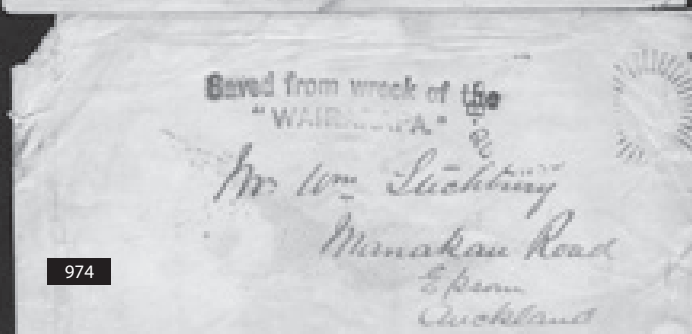 Saved from wreck of the
"WAIRARAPA."
Mr. Wm Stichbury
Manakau Road
Epsom
Auckland
974